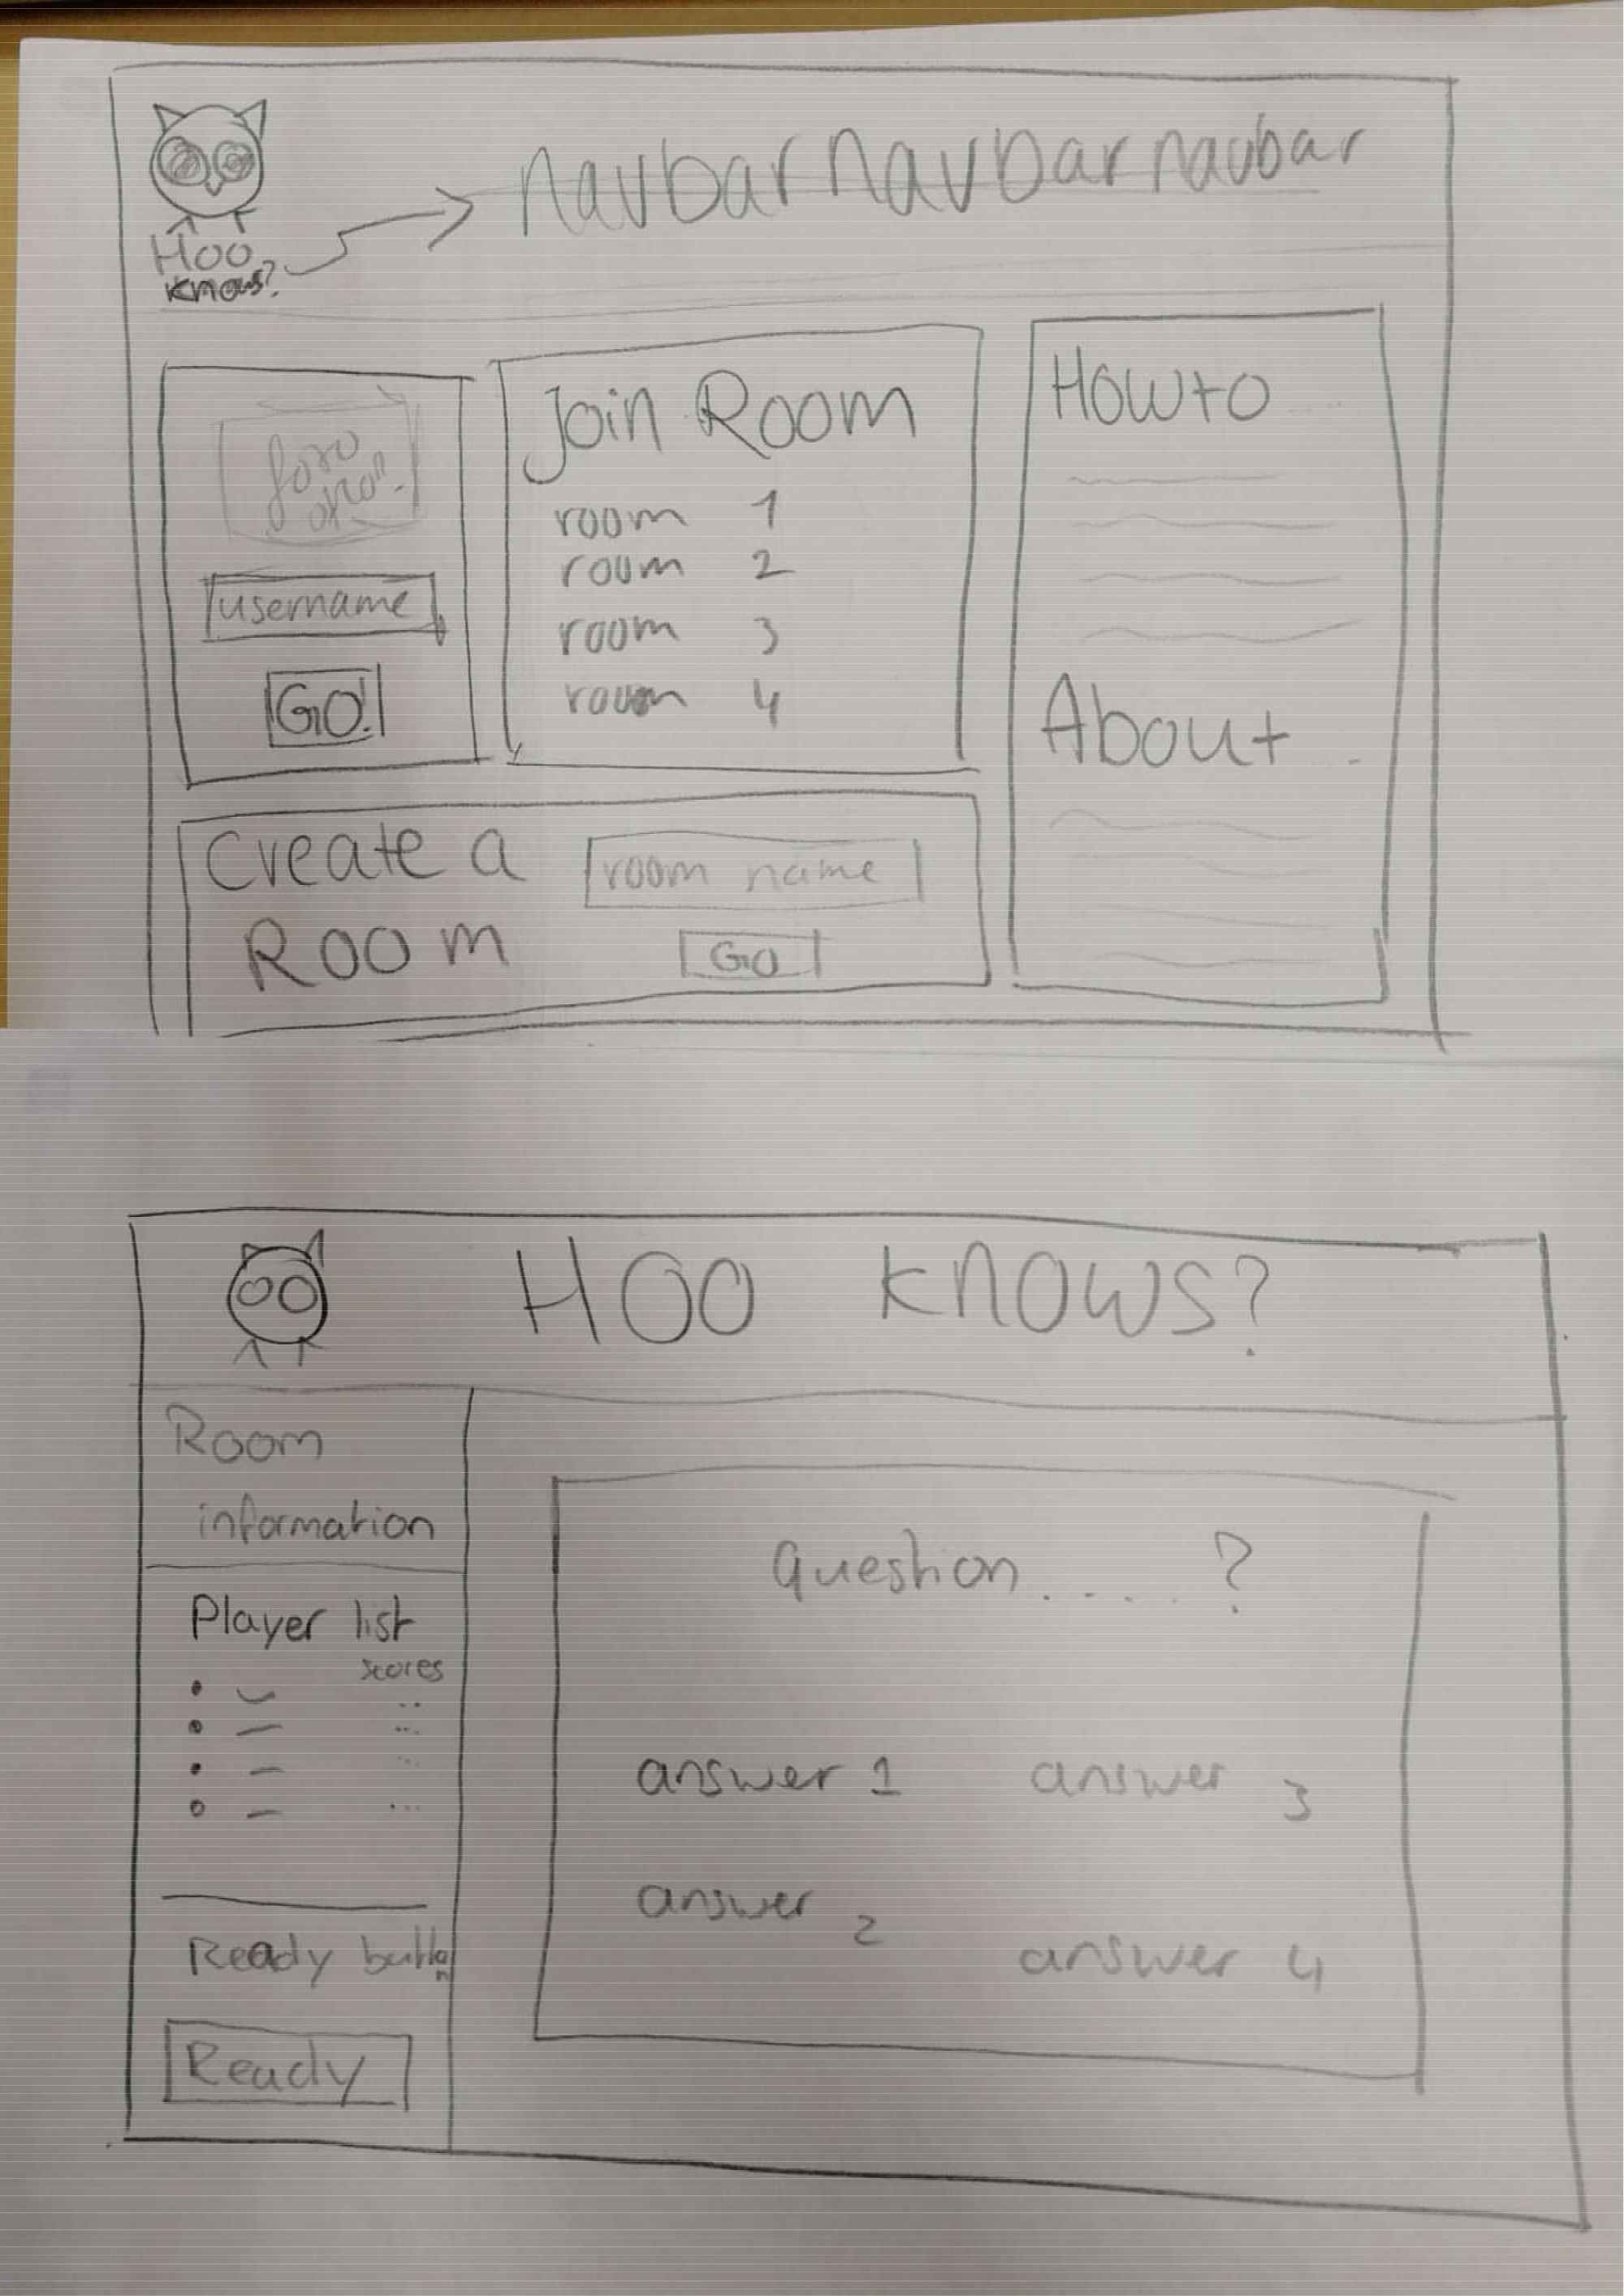 navbar navbar navbar
Hoo
knows?
username
GO!
Join Room
room 1
room 2
room 3
room 4
How to ....
About ..
Create a
Room
room name
GO
HOO KNOWS?
Room
information
Player list
scores
Ready button
Ready
Question ..... ?
answer 1
answer 3
answer 2
answer 4